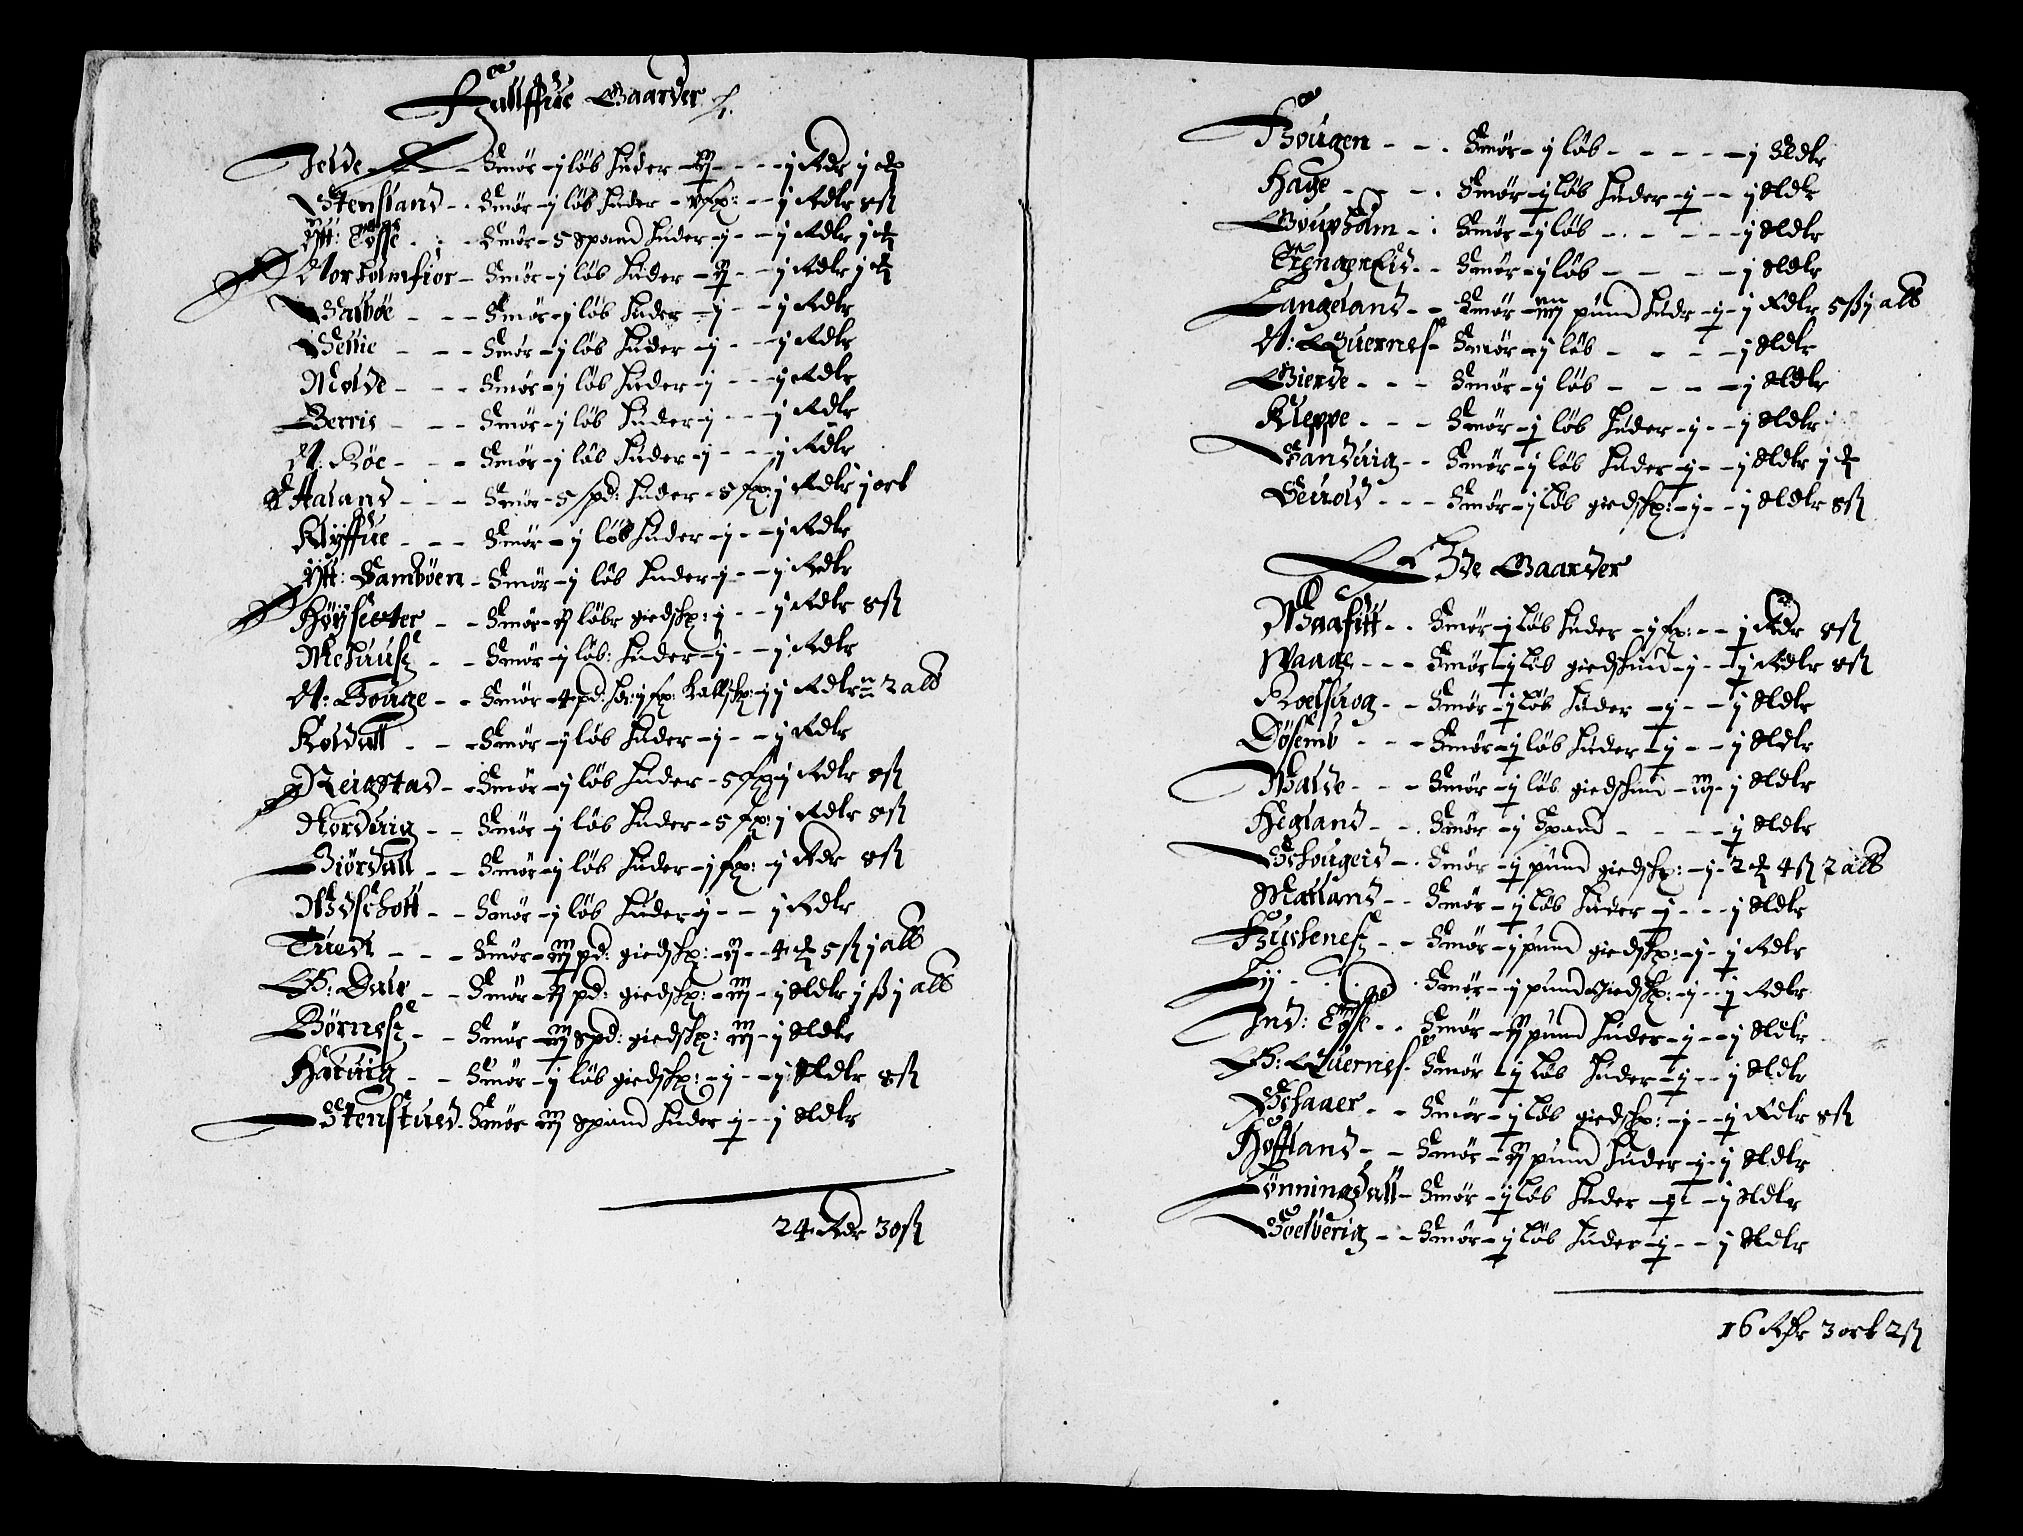 Halffue Gaarder
Jelde - Smør - j løb Huder - ij - - j Rdr j ort
Stensland - Smør - j løb Huder - - j Rdlr 8 sk
Ytt: Tøsse - Smør - 5 spand Huder - j - - j Rdlr j ort
Norholmfior - Smør - j løb Huder - ij - - j Rdlr j ort
Salbøe - - - Smør - j løb Huder - j - - j Rdlr
Sellie - - - Smør - j løb Huder - j - - j Rdlr
Molde - - - Smør - j løb Huder - j - - j Rdlr
Berris - - - Smør - j løb Huder - j - - j Rdlr
N: Bøe - - - Smør - j løb Huder - j - - j Rdlr
Haland - - - Smør - 5 spd: Huder - 8 j Rdlr j ort
Klyffue - - - Smør - j løb Huder - j - - j Rdlr
Ytt: Samdøen - Smør - j løb Huder - j - - j Rdlr
Høyseeter - - Smør - ij løbr giedskz: j - - j Rdlr 8 sk
Melhusz - - Smør - j løb: Huder - j - - j Rdlr
N: Houge - - Smør - 4 pd: kalfskz: j j Rdlr 2 alb
Koldall - - - Smør - j løb Huder - j - - j Rdlr
Reigstad - - Smør - j løb Huder - 5 j Rdlr 8 sk
Norduig - - Smør - j løb Huder - 5 j Rdlr 8 sk
Biørdall - - Smør - j løb Huder - j - j Rdr 8 sk
Vdschott - - Smør - j løb Huder j - - j Rdlr
Tuedt - - - Smør - iij pd: giedskz: - ij - - 4 ort 5 sk j alb
S: Dale - - Smør - ij pd: giedskz: - iij - j Rdlr j sk j alb
Børnesz - - Smør - iij spd: giedskz: iij - j Rdlr
Haruig - - Smør - j løb giedskz: - j - - j Rdlr 8 sk
Stenstued - Smør iij spand Huder - j - - j Rdlr
24 Rdr 30 sk
Hougen - - - Smør - j løb - - - - - j Rdlr
Hage - - - Smør - j løb Huder - j - - j Rdlr
Goupham - Smør - j løb - - - - j Rdlr
Tengereid - - Smør - j løb - - - - j Rdlr
Langeland - - Smør - iiij pund Hudr - j - j Rdlr 5 sk j alb
N: Quernes - Smør - j løb - - - - j Rdlr
Gierde - - - Smør - j løb - - - - j Rdlr
Kleppe - - - Smør - j løb Huder - j - - j Rdlr
Sanduig - - Smør - j løb Huder - j - - j Rdlr j ort
Seurold - - - Smør - j løb giedskz: - j - - j Rdlr 8 sk
Øde Gaarder
Vaasitt - - Smør - j løb Huder - j - - j Rdr 8 sk
Waage - - - Smør - j løb giedskind - j - - j Rdlr 8 sk
Roelsuog - - Smør - j løb Huder - j - - j Rdlr
Døsemb - - - Smør - j løb Huder - j - - j Rdlr
Valde - - - Smør - j løb giedskind - iij - j Rdlr
Hegland - - Smør - j Spand - - - - j Rdlr
Schougeid - - Smør - j pund giedskz: - j - 2 ort 4 sk 2 alb
Malland - - Smør - j løb Huder - j - - - j Rdlr
Huckenesz - - Smør - j pund giedskz: - j - j Rdlr
Ly - - - Smør - j pund Giedskz: - j - - j Rdlr
Ind: Tøsse - - Smør - ij pund Huder - j - - j Rdlr
S: Quernes - Smør - j løb Huder - j - - j Rdlr
Schaaer - - Smør - j løb giedskz: - j - - j Rdlr 8 sk
Hoffland - - Smør - ij pund Huder - j - j Rdlr
Lønningdall - Smør - j løb Huder - j - j Rdlr
Soelberig - - Smør - j løb Huder - j - - j Rdlr
16 Rdr 3 ort 2 sk